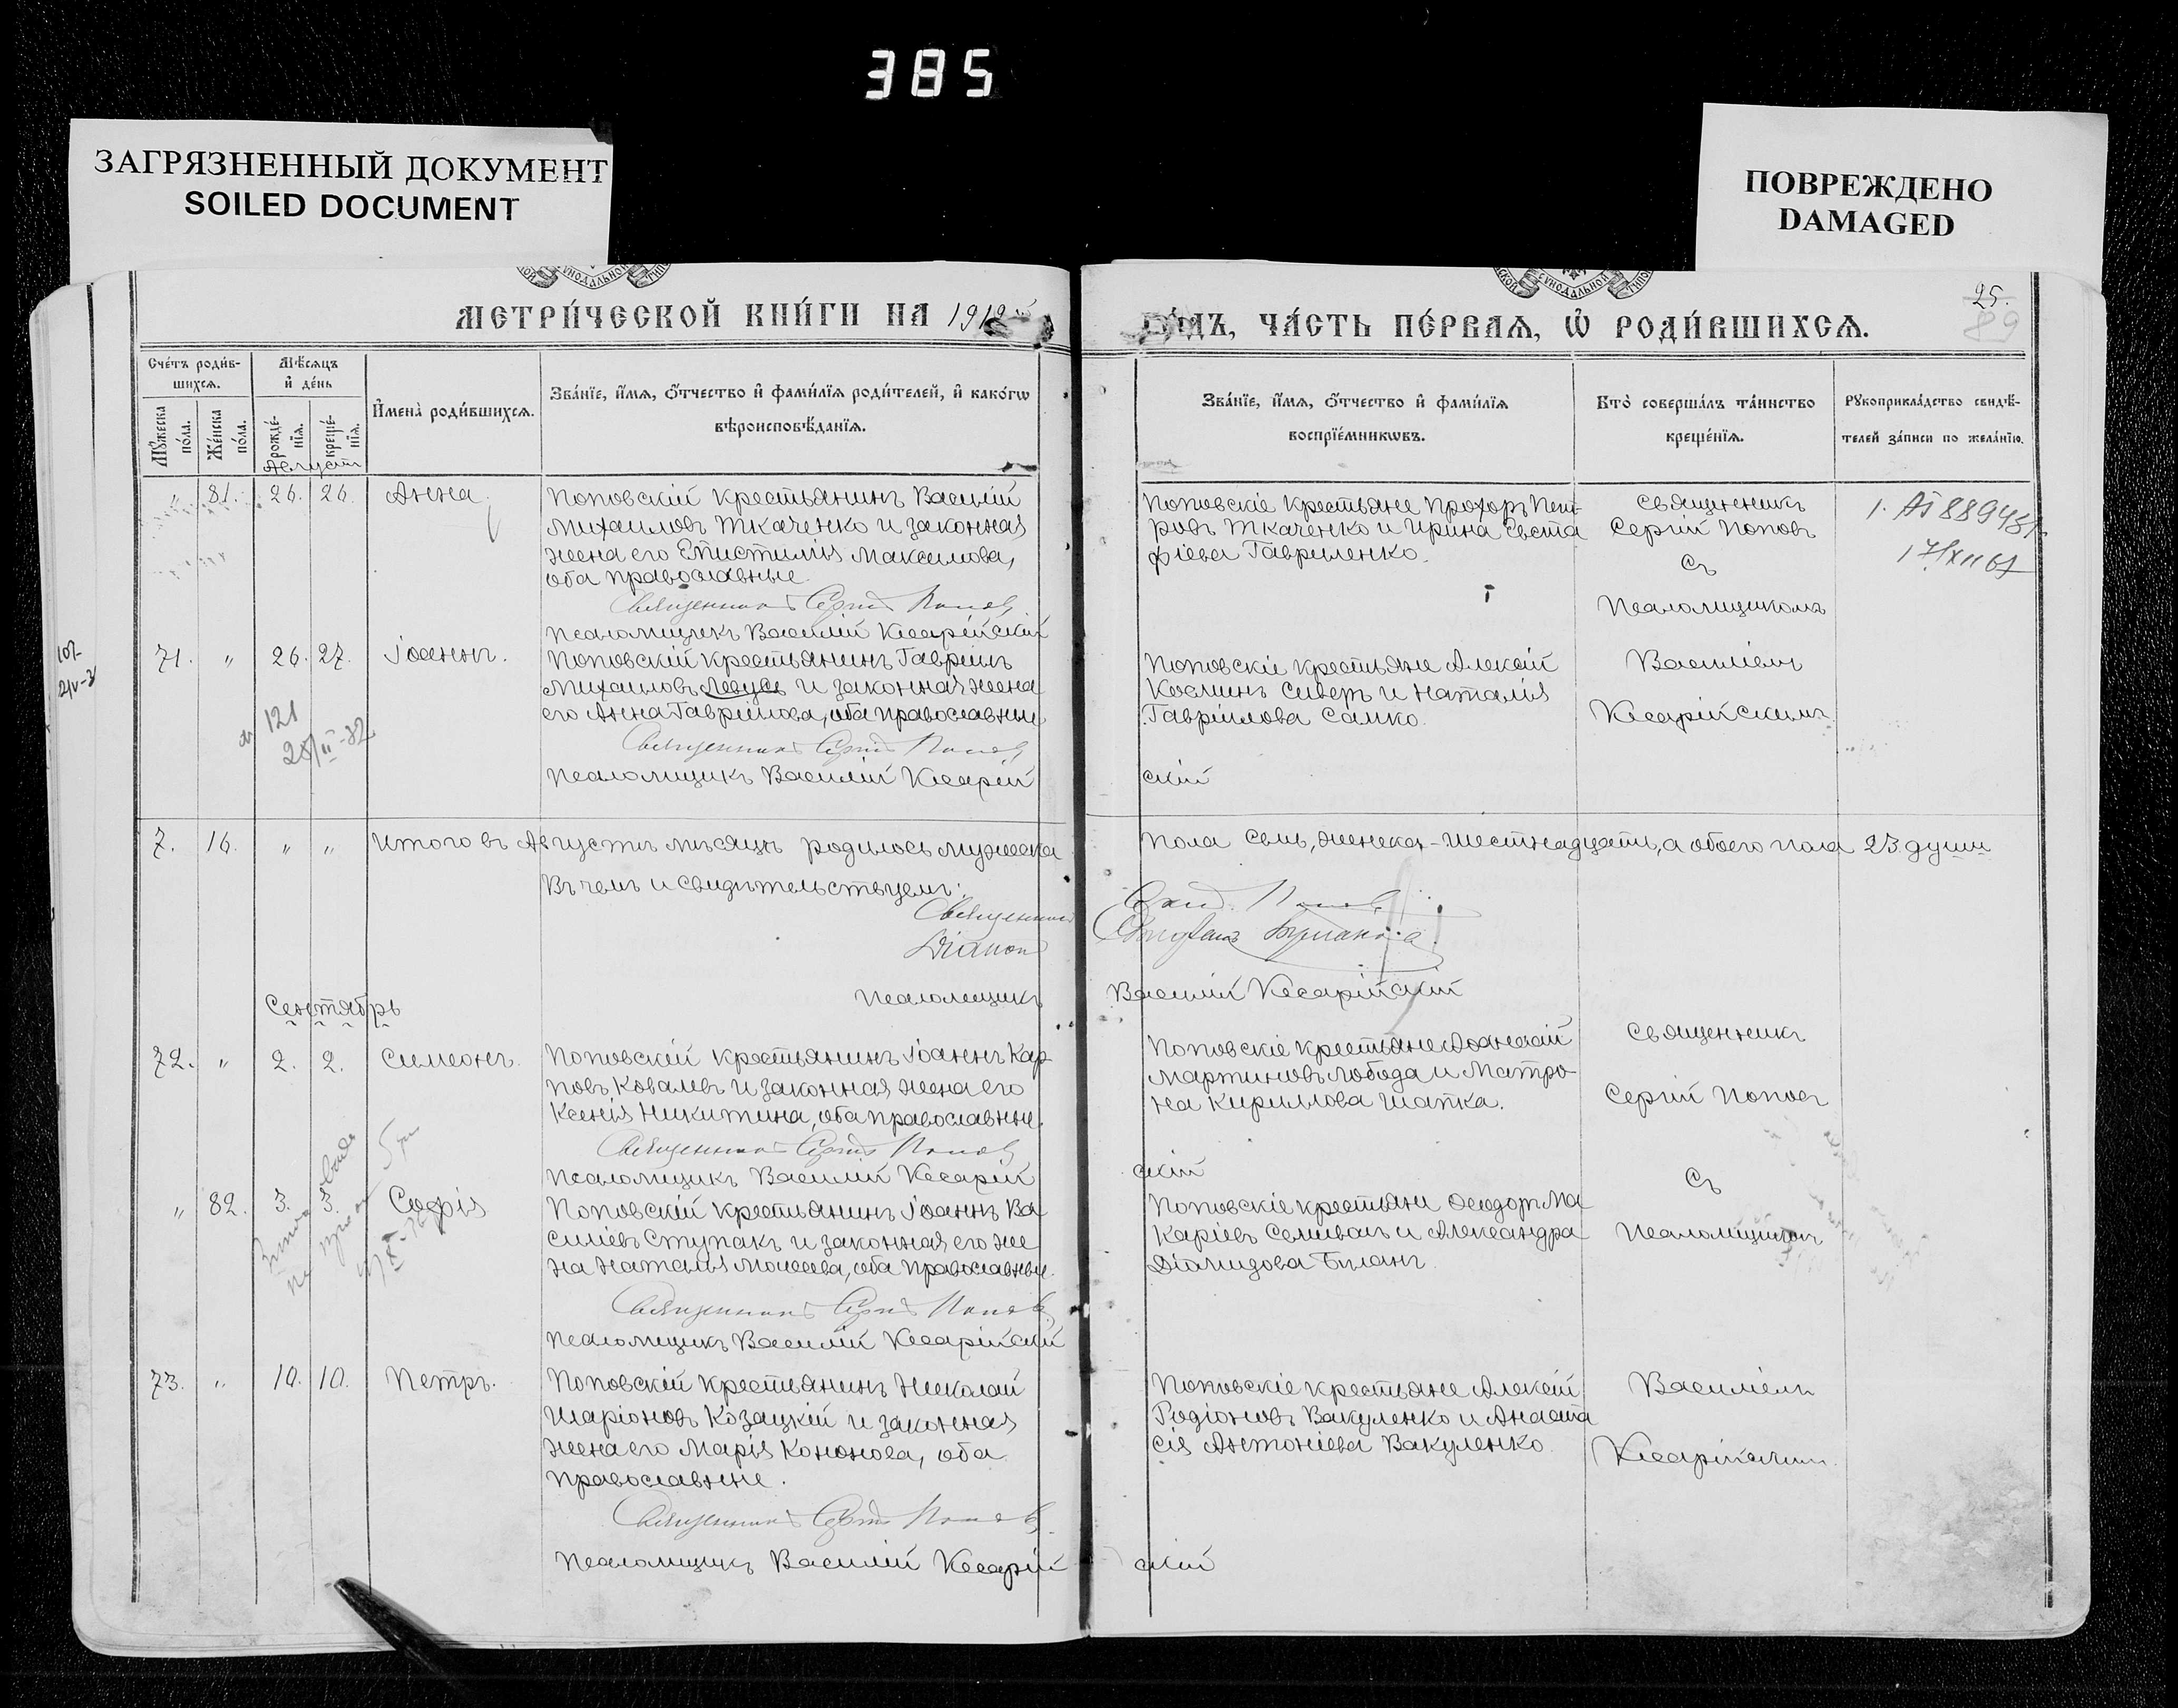 385
ЗАГРЯЗНЕННЫЙ ДОКУМЕНТ
SOILED DOCUMENT
ПОВРЕЖДЕНО
DAMAGED
МЕТРИ́ЧЕСКОЙ КНИ́ГИ НА 1912
ГО́ДЪ, ЧА́СТЬ ПЕ́РВАѦ, Ѡ҆ РОДИ́ВШИХСѦ.
25.
89
Счéтъ роди́в-
шихсѧ.
Мѣ́сѧцъ
и҆ де́нь
Мꙋ́жеска
по́ла.
Же́нска
по́ла.
рожде́-
нїѧ.
креще́-
нїѧ.
И҆мена̀ роди́вшихсѧ.
Зва́нїе, и҆́мѧ, ѻ҆́тчество и҆ фами́лїѧ роди́телей, и҆ како́гѡ
вѣроисповѣ́данїѧ.
Зва́нїе, и҆́мѧ, ѻ҆́тчество и҆ фами́лїѧ
воспрїе́мникѡвъ.
Кто̀ соверша́лъ та́инство
креще́нїѧ.
Рꙋкоприкла́дство свидѣ́-
телей за́писи по жела́нїю.
Августъ
" 81. 26. 26. Анна
Поповскій крестьянинъ Василій
Михаиловъ Ткаченко и законная
жена его Епистимія Максимова,
оба православные.
Священникъ Сергій Поповъ
Псаломщикъ Василій Кесарійскій
Поповскіе крестьяне Прохоръ Пет-
ровъ Ткаченко и Ирина Евста
фіева Гавриленко.
Священникъ
Сергій Поповъ
съ
Псаломщикомъ
71. " 26. 27. Іоаннъ.
Поповскій крестьянинъ Гавріилъ
Михаиловъ и законная жена
его Анна Гавріилова, оба православные
Священникъ Сергій Поповъ
Псаломщикъ Василій Кесарій
скій
121
Поповскіе крестьяне Алексѣй
Косминъ и Наталія
Гавріилова Самко.
Василіемъ
Кесарійскимъ
7. 16. " " Итого въ Августѣ мѣсяцѣ родилось мужеска
пола семь, женска-шестнадцать, а обоего пола 23 души
Въ чемъ и свидѣтельствуемъ:
Священникъ Сергій Поповъ
Діаконъ
Псаломщикъ Василій Кесарійскій
Сентябрь
72. " 2. 2. Симеонъ.
Поповскій крестьянинъ Іоаннъ Кар
повъ Ковалевъ и законная жена его
Ксенія Никитина, оба православные.
Священникъ Сергій Поповъ
Псаломщикъ Василій Кесарій
скій
Поповскіе крестьяне Аѳанасій
Мартиновъ Лобода и Матро
на Кириллова Шапка.
Священникъ
Сергій Поповъ
съ
" 82. 3. 3. Софія
Поповскій крестьянинъ Іоаннъ Ва
силіевъ Ступакъ и законная его же
на Наталія Моисеева, оба православные.
Священникъ Сергій Поповъ
Псаломщикъ Василій Кесарійскій
Поповскіе крестьяне Ѳеодоръ Ма
каріевъ Селиванъ и Александра
Діамидова Биланъ
Псаломщикомъ
73. " 10. 10. Петръ.
Поповскій крестьянинъ Николай
Иларіоновъ Козацкій и законная
жена его Марія Кононова, оба
православные.
Священникъ Сергій Поповъ
Псаломщикъ Василій Кесарій
скій
Поповскіе крестьяне Алексѣй
Родіоновъ Вакуленко и Анаста
сія Антоніева Вакуленко.
Василіемъ
Кесарійскимъ.